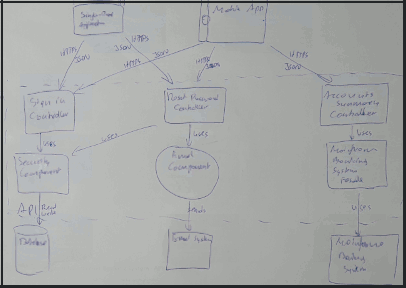 Mobile App
HTTPS
JSON
JSON
HTTPS
HTTPS
JSON
HTTPS
HTTPS
JSON
Sign in
Controller
Reset Password
Controller
Accounts
Summary
Controller
uses
uses
uses
uses
Security
Component
Email
Component
Mainframe
Banking
System
Facade
API
Read
Write
uses
Database
Email System
Mainframe
Banking
System